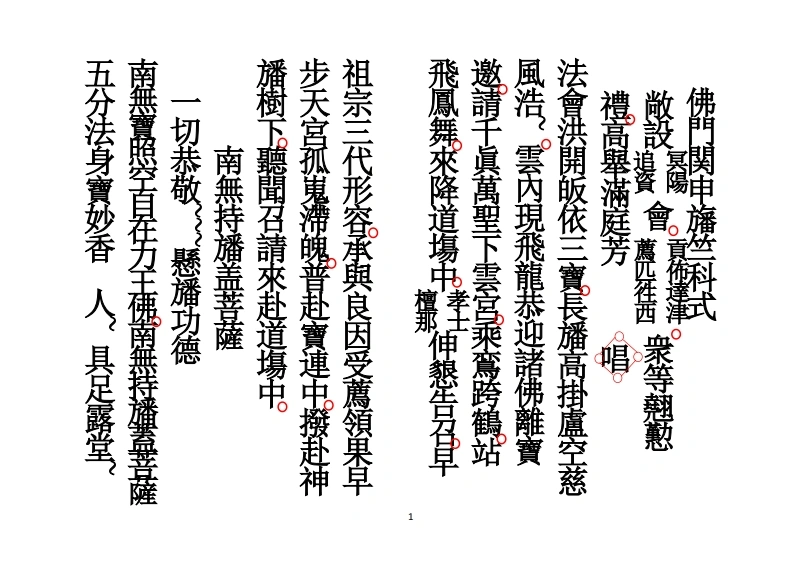 佛門関申旛竺科式
敞設冥陽追資會頁佈達津薦匹徃西衆等翹懃
禮高舉滿庭芳 唱
法會洪開皈依三寶長旛高掛盧空慈
風浩〻雲內現飛龍恭迎諸佛離寶
邀請千眞萬聖下雲宮乘鸞跨鶴站
飛鳳舞來降道場中孝士檀那伸懇告召早
祖宗三代形容承與良因受薦領果早
步天宮孤嵬滯魄普赴寶連中撥赴神
旛樹下聽聞召請來赴道場中
南無持旛盖菩薩
一切恭敬〻〻 懸旛功德
南無寶照空自在力王佛南無持旛蓋菩薩
五分法身寶妙香 人〻具足露堂〻
1